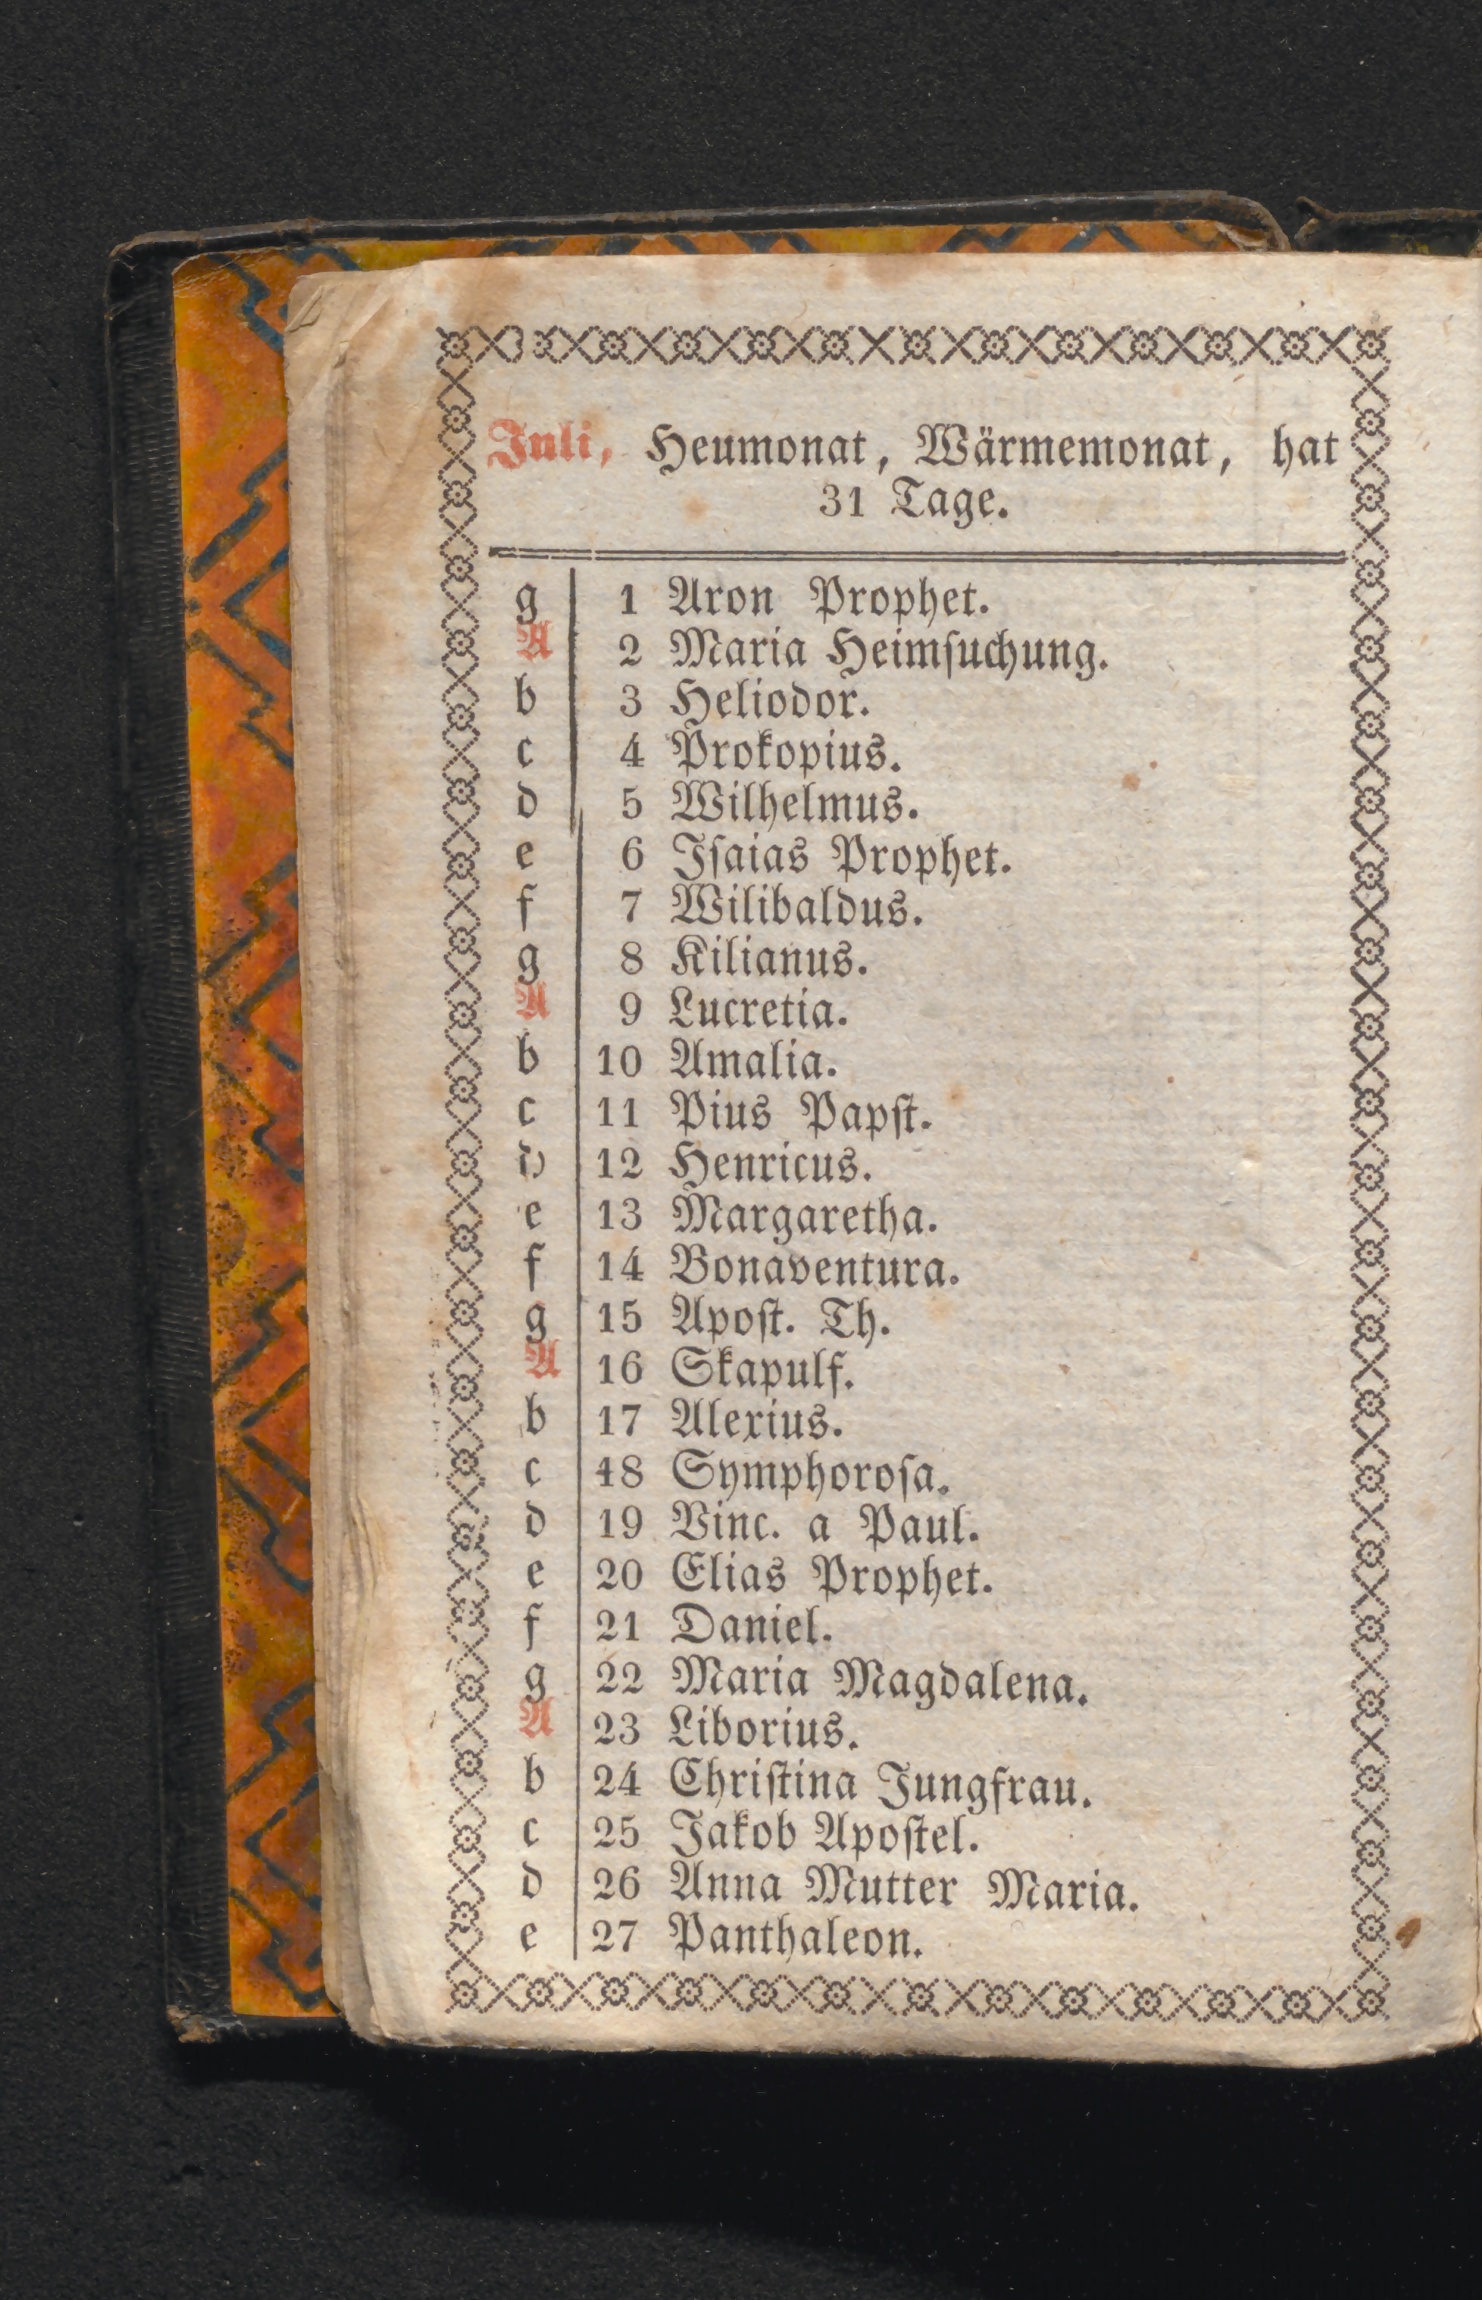 Juli, Heumonat, Wärmemonat, hat
31 Tage.
g 1 Aron Prophet.
A 2 Maria Heimſuchung.
b 3 Heliodor.
c 4 Prokopius.
d 5 Wilhelmus.
e 6 Iſaias Prophet.
f 7 Wilibaldus.
g 8 Kilianus.
A 9 Lucretia.
b 10 Amalia.
c 11 Pius Papſt.
d 12 Henricus.
e 13 Margaretha.
f 14 Bonaventura.
g 15 Apoſt. Th.
A 16 Skapulf.
b 17 Alexius.
c 18 Symphoroſa.
d 19 Vinc. a Paul.
e 20 Elias Prophet.
f 21 Daniel.
g 22 Maria Magdalena.
A 23 Liborius.
b 24 Chriſtina Jungfrau.
c 25 Jakob Apoſtel.
d 26 Anna Mutter Maria.
e 27 Panthaleon.